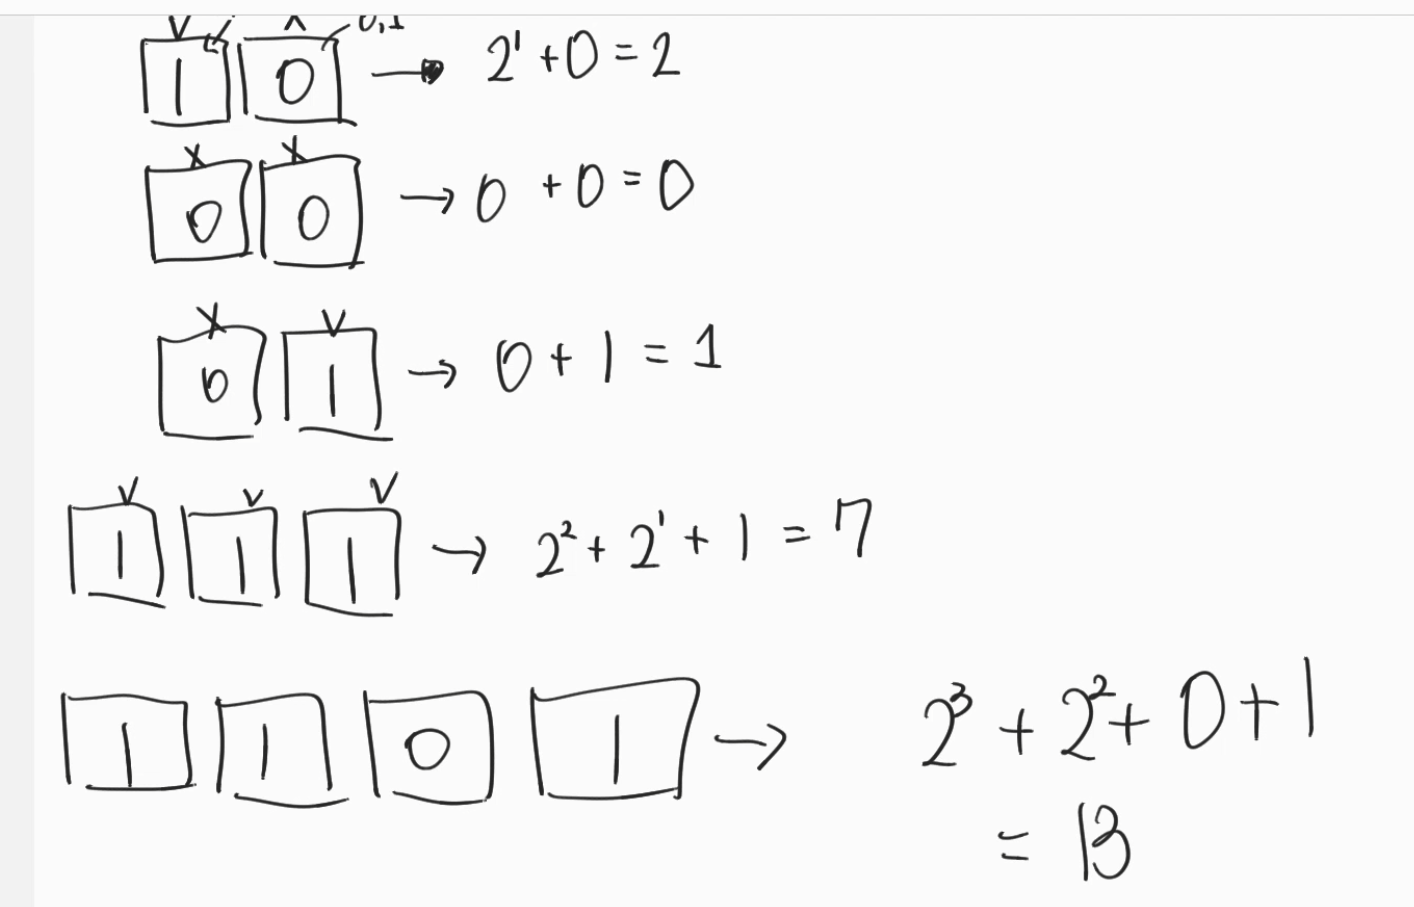 0,1
1 0 → 2¹ + 0 = 2
0 0 → 0 + 0 = 0
0 1 → 0 + 1 = 1
1 1 1 → 2² + 2¹ + 1 = 7
1 1 0 1 → 2³ + 2² + 0 + 1
= 13